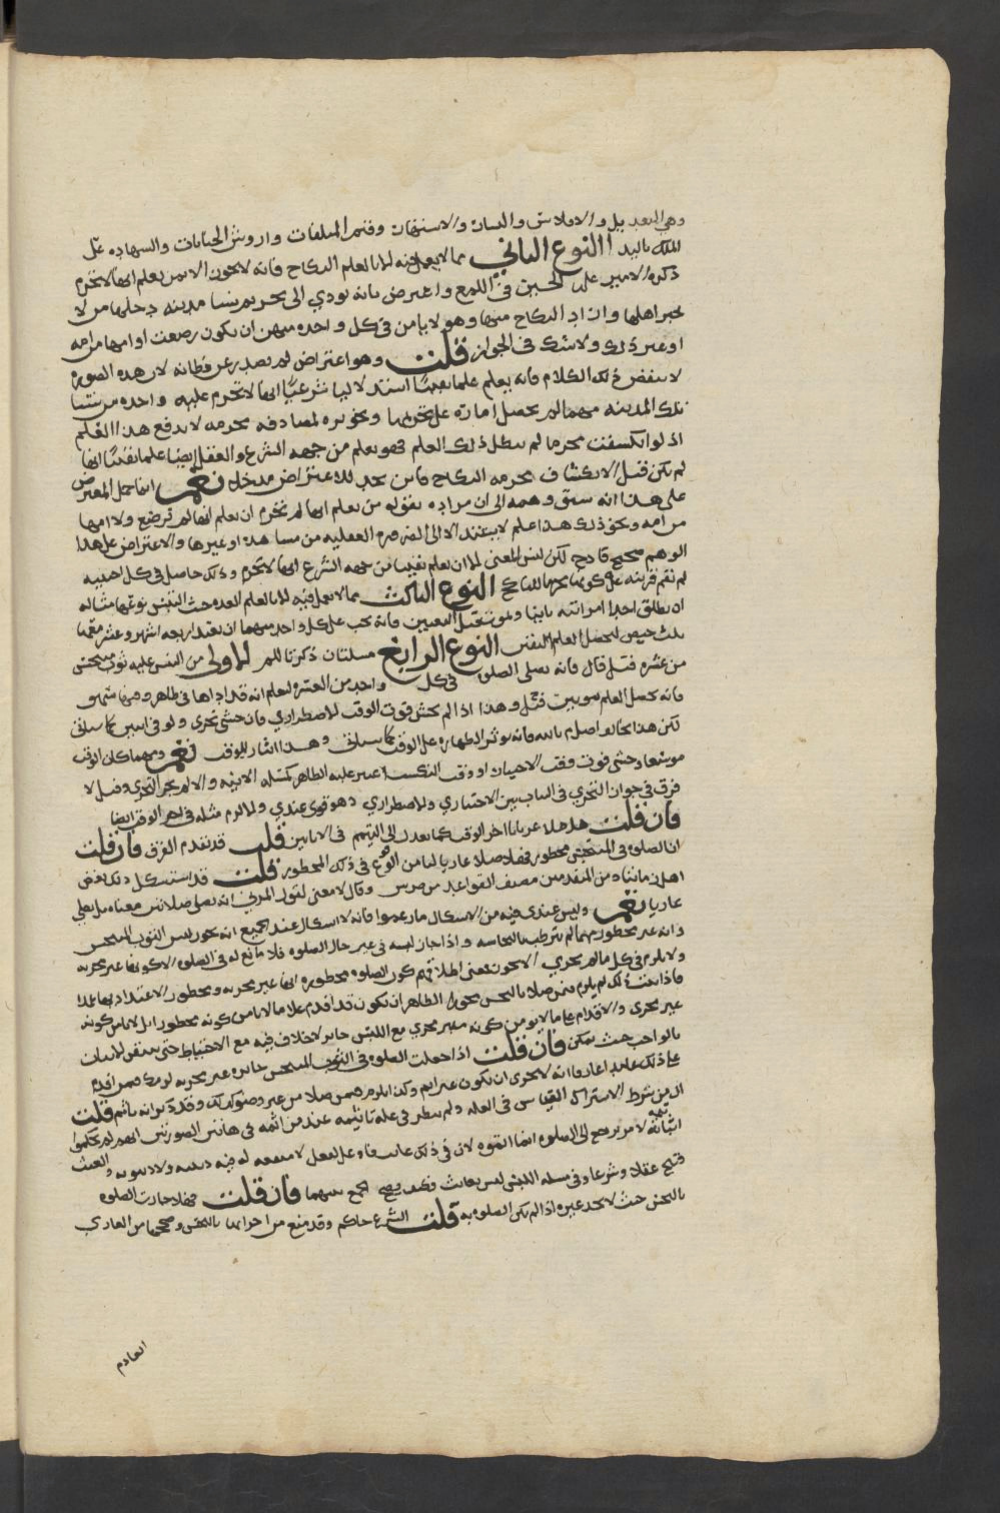 وهي التعديل والافلاس والنسان والاستنهان وقيم المتلفات واروش الجنايات والشهاده على
الملك باليد النوع الثاني مما لا يعمل فيه الا بالعلم النكاح فانه لا يجوز الا لمن يعلم انها لا تحرم
ذكره الامير علي الحسين في اللمع واعترض بانه يودي الى تحريم نسا مدينه دخلها من لا
يخبر اهلها واراد النكاح منها وهو لا يامن في كل واحده منهن ان يكون رضعت او امها من امه
او غير ذلك ولا شك في الجواز قلت وهو اعتراض لم يصدر عن فطانه لان هذه الصوره
لا تنقض ذلك الكلام فانه يعلم علما يقينا استدلاليا شرعيا انها لا تحرم عليه واحده من نسا
تلك المدينه مهما لم يحصل اماره على تحريمها وتجويزه لمصادفه محرمه لا يدفع هذا العلم
اذ لو انكشفت محرما لم يبطل ذلك العلم فهو يعلم من جهه الشرع والعقل ايضا علما يقينا انها
لم تكن قبل الانكشاف محرمه النكاح فاين تجد للاعتراض مدخلا نعم انما حمل المعترض
على هذا انه سبق وهمه الى ان مراده بقوله من يعلم انها لم تحرم ان يعلم انها لم ترضع ولا امها
من امه ونحو ذلك هذا علم لا يستند الا الى الضروره العقليه من مشاهده او غيرها والاعتراض على هذا
الوهم صحيح قادح لكن ليس المعنى الا ان يعلم يقينا من جهه الشرع انها لا تحرم وذلك حاصل في كل اجنبيه
لم تقم قرينه على كونها محرما للناكح النوع الثالث مما لا يعمل فيه الا بالعلم العده حيث التبس نوعها مثاله
ان يطلق احدا امراتيه باينا ويموت قبل التعيين فانه يجب على كل واحد منهما ان تعتد اربعه اشهر وعشر معها
ثلث حيض لتحصل العلم اليقين النوع الرابع مسلتان ذكرتا للم الاولى من التبس عليه ثوب متنجس
من عشره فقيل قال فانه يصلي الصلوه في كل واحد من العشره ليعلم انه قد اداها في طاهر
فانه يحصل العلم بثوبين فقيل وهذا اذا لم يخش فوت الوقت الاضطراري فان خشي تحرى ولو في اثنين كما سياتي
لكن هذا يخالف اصلهم بانه يوثر الطهاره على الوقت كما سياتي وهذا ايثار للوقت نعم ومهما كان الوقت
موسعا وخشي فوت وقت الاختيار
فرق في جواز التحري في الثياب بين الاختياري والاضطراري وهو قوي عندي والا لزم مثله في اخر الوقت ايضا
فان قلت هلا صلا عريانا اخر الوقت كما يعدل الى التيمم في الاناين قلت قد تقدم الفرق فان قلت
ان الصلوه في المتنجس محظور فهلا صلا عاريا ليامن من الوقوع في ذلك المحظور قلت قد استشكل ذلك بعض
اهل زماننا ومن المتقدمين مصنف القواعد وقال لا معنى لقول المزني انه يصلي صلاتين معناه بل يصلي
عاريا نعم وليس عندي فيه من الاشكال ما زعموا فانه لا اشكال عند الجميع انه يجوز لبس الثوب المتنجس
وانه غير محظور مهما لم يترطب بالنجاسه واذا جاز لبسه في غير حال الصلوه فلا مانع له في الصلوه الا كونها غير مجزيه
ولا يلزم في كل ما لم يجزي الا يجوز فمعنى اطلاقهم كون الصلوه محظوره انها غير مجزيه ومحظور الاعتداد بها
فاذا ثبت ذلك لم يلزم فمن صلا بالنجس مجوزا الطاهر ان يكون قد اقدم على ما لا يامن كونه محظورا بل لا يامن كونه
غير مجزي والاقدام على ما لا يومن كونه غير مجزي مع اللبس جايز لا خلاف فيه مع الاحتياط حتى يتيقن الاتيان
بالواجب حيث يمكن فان قلت اذا جعلت الصلوه في الثوب المتنجس جايزه غير مجزيه لزمك فيمن اقدم
على ذلك عامدا عارفا انه لا يجزي ان يكون غير اثم وكذا يلزم فيمن صلا من غير وضو كذلك وقد ذكر انه ياثم قلت
ان من شرط الاستراك القياس في العله ولم ينظر في عله تاثيمه عند من اثمه في هاتين الصورتين
لامر يرجع الى الصلوه انما القوه لان في ذلك عابث فاعل لفعل لا منفعه له فيه والعبث
قبيح عقلا وشرعا وفي مسله اللبس ليس بعابث فكيف يصح الجمع بينهما فان قلت فهلا جازت الصلوه
بالنجس حيث لا يجد غيره اذا لم تكن الصلوه به قلت الشرع حاكم وقد منع من اجزايها بالنجس وصححها من العاري
العادم